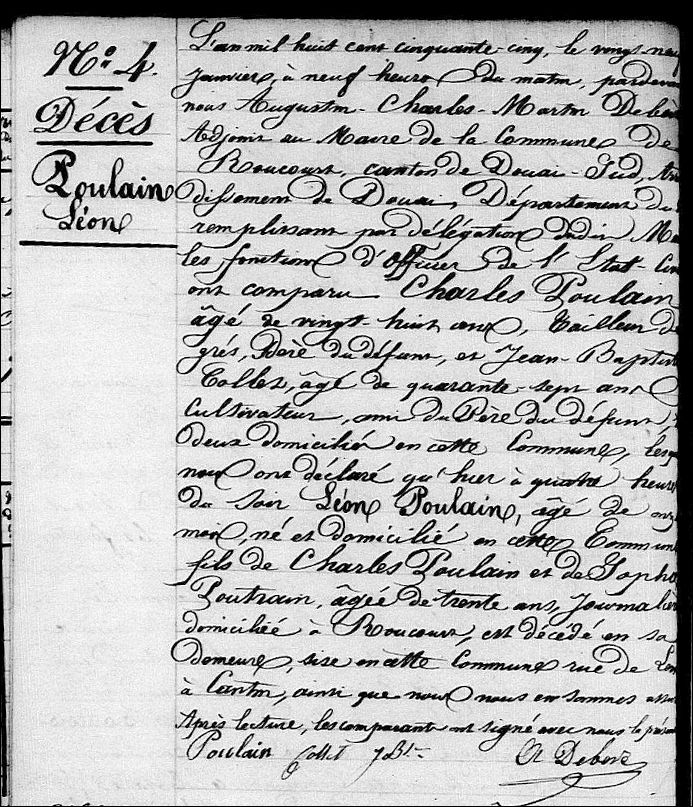 N.o 4.
Décès
Poulain
Léon
L'an mil huit cent cinquante-cinq, le vingt-neuf
janvier, à neuf heures du matin, pardevant
nous Augustin-Charles-Martin Debève
Adjoint au Maire de la Commune de
Roucourt, canton de Douai-Sud, Arr
dissement de Douai, Département du
remplissant par délégation dudit Ma
les fonctions d'Officier de l'Etat-Civ
ont comparu Charles Poulain
âgé de vingt-huit ans, Tailleur de
grés, Père du défunt, et Jean-Baptist
Collet, âgé de quarante-sept ans
Cultivateur, ami du Père du défunt,
deux domiciliés en cette Commune, lesq
nous ont déclaré qu'hier à quatre heures
du soir Léon Poulain, âgé de onz
mois, né et domicilié en cette Commune
fils de Charles Poulain et de Soph
Poutrain, âgée de trente ans, Journaliè
domiciliée à Roucourt, est décédé en sa
demeure, sise en cette Commune rue de
à Cantin, ainsi que nous nous en sommes assu
Après lecture, les comparants ont signé avec nous le prése
Poulain Collet J. Bte A Debève